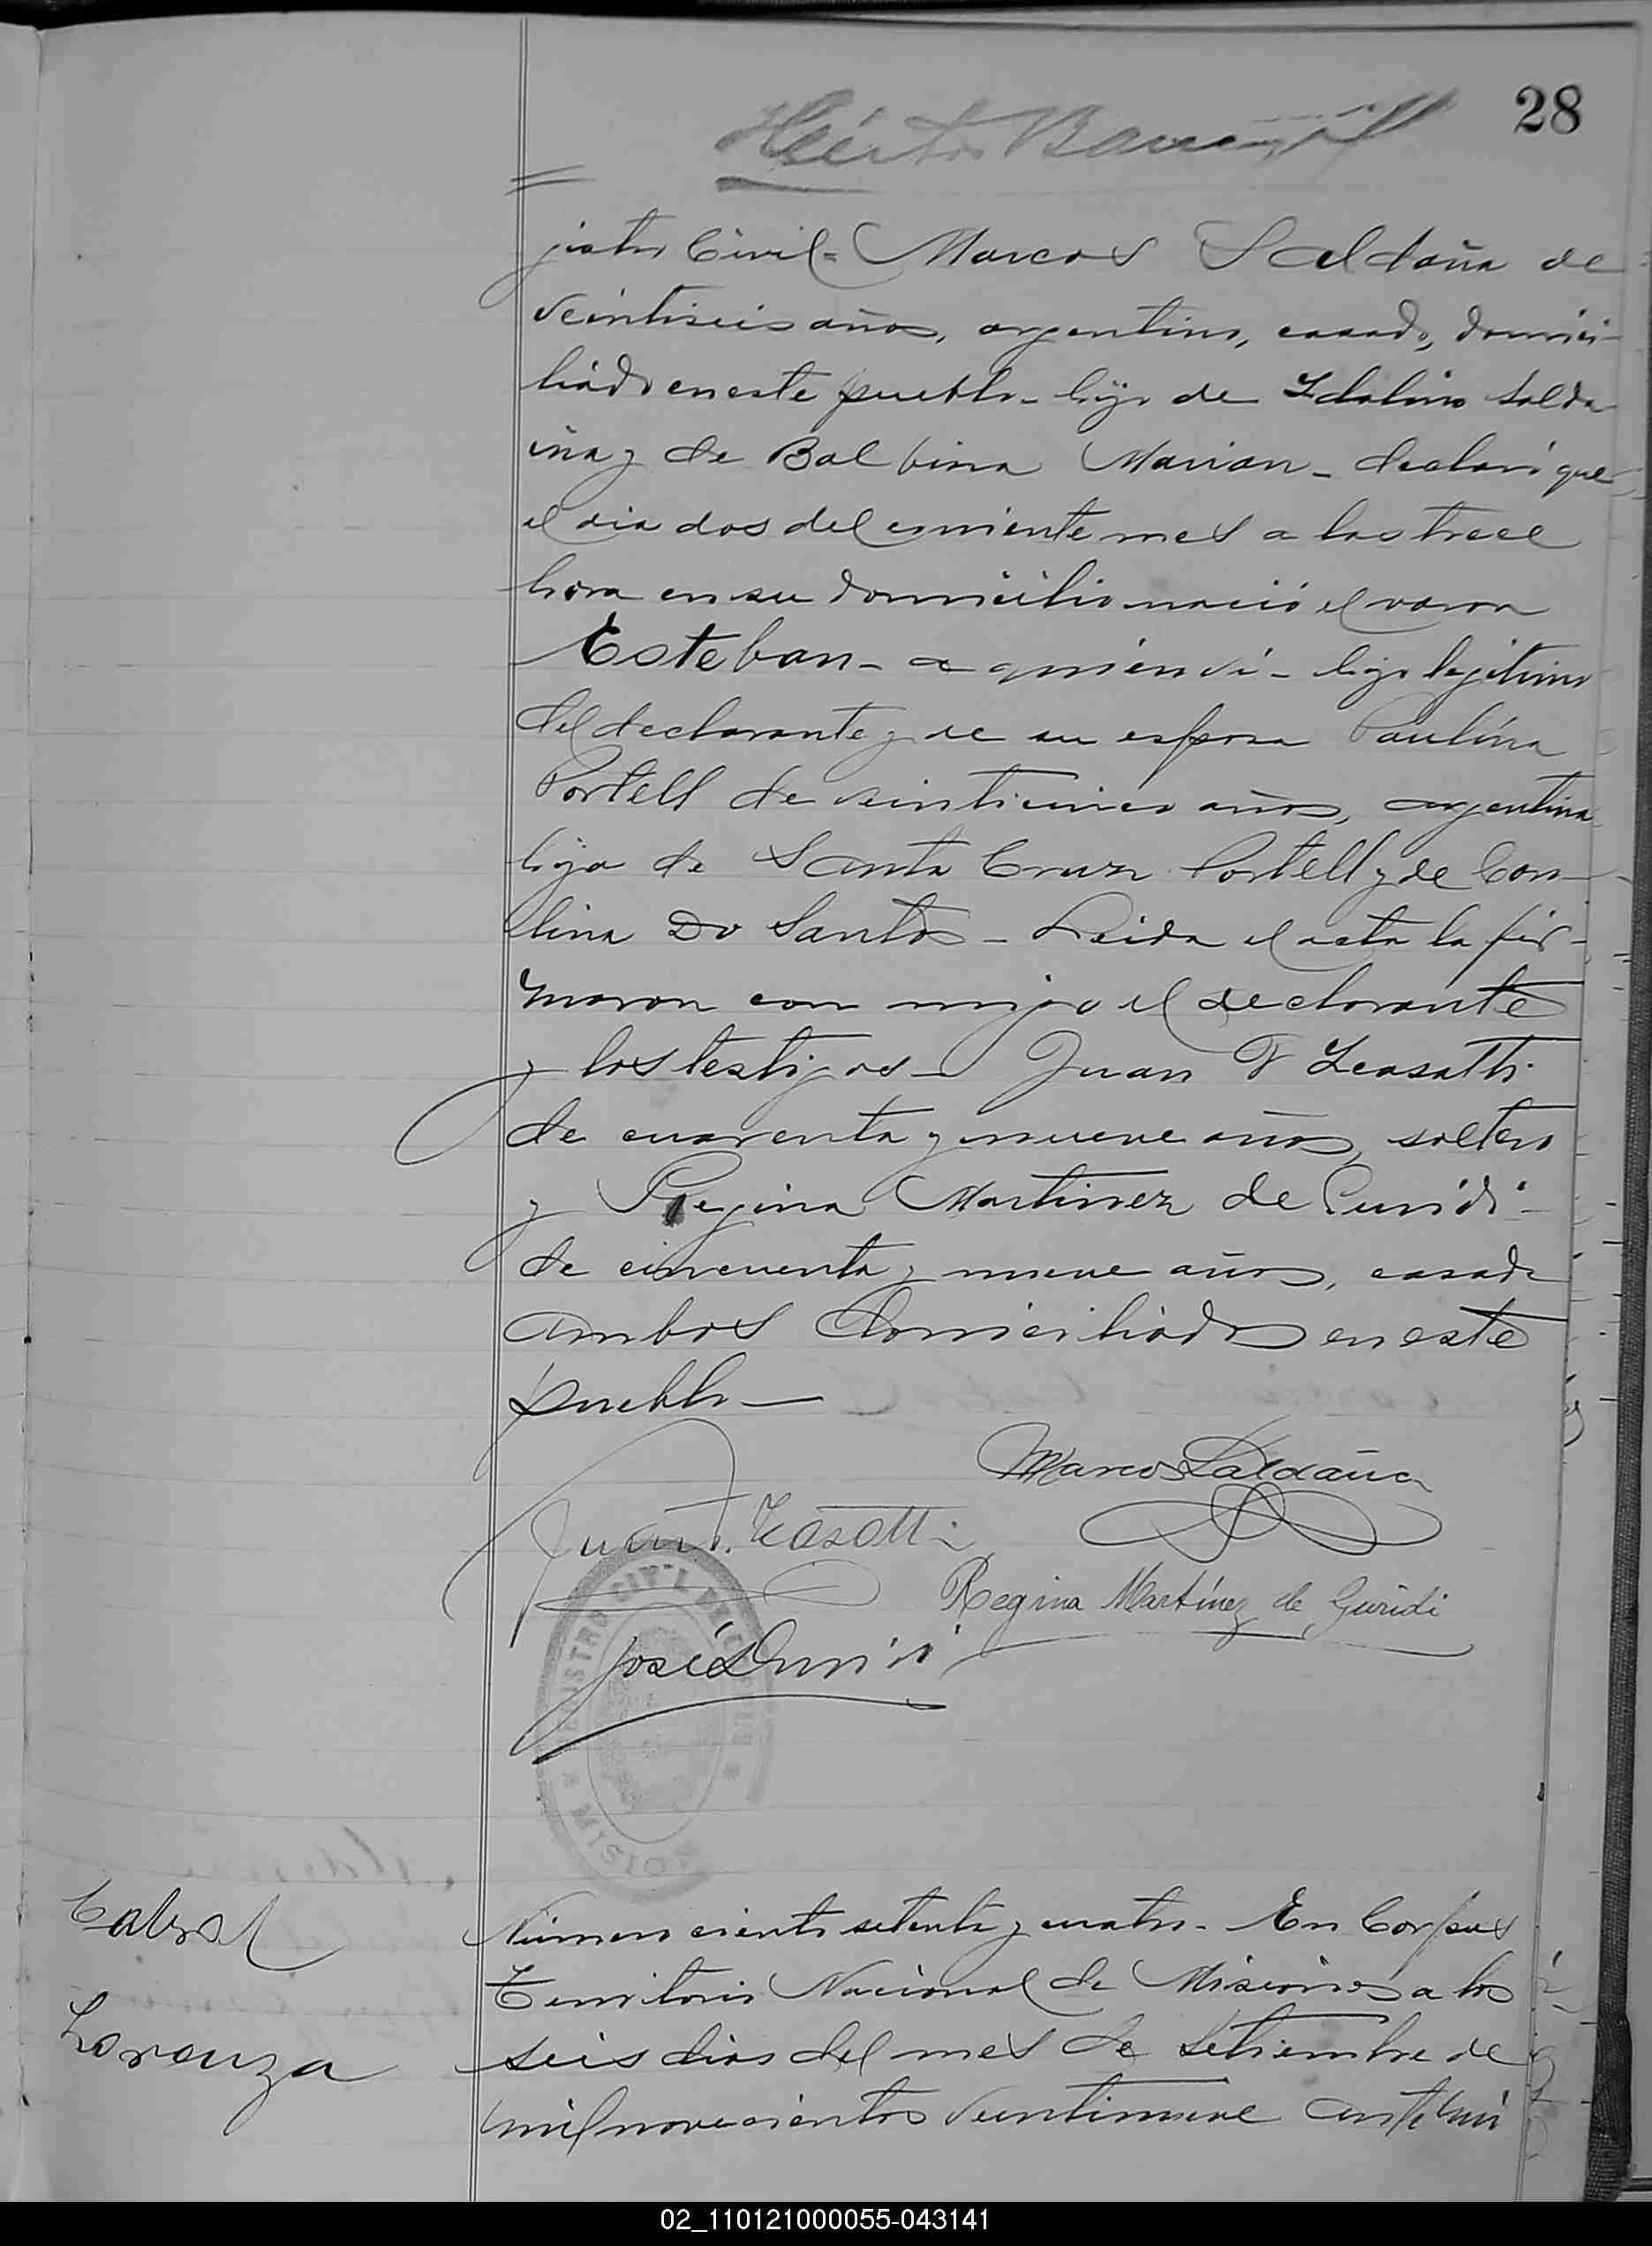 28
Héctor
jistro Civil = Marcos Saldaña de
veintiseis años, argentino, casado, domici-
liado en este pueblo - hijo de Idalino Salda-
ña y de Balbina Marian - declaró que
el dia dos del corriente mes a las trece
hora en su domicilio nació el varon
Esteban - a quien ví - hijo lejitimo
del declarante y de su esposa Paulina
Portell de veinticinco años, argentina
hija de Santa Cruz Portell y de
Do Santos - Leida el acta la fir-
maron con migo el declarante
y los testigos - Juan F
de cuarenta y nueve años, soltero
y Regina Martinez de Guridi -
de cincuenta y nueve años, casada
ambos domiciliados en este
pueblo -
Marcos Saldaña
Juan F.
Regina Martínez de Guridi
José
REGISTRO CIVIL
MISIO
Cabral
Lorenza
Número ciento setenta y cuatro - En Corpus
Territorio Nacional de Misiones a los
seis dias del mes de Setiembre de
mil novecientos veintinueve ante mi
02_110121000055-043141